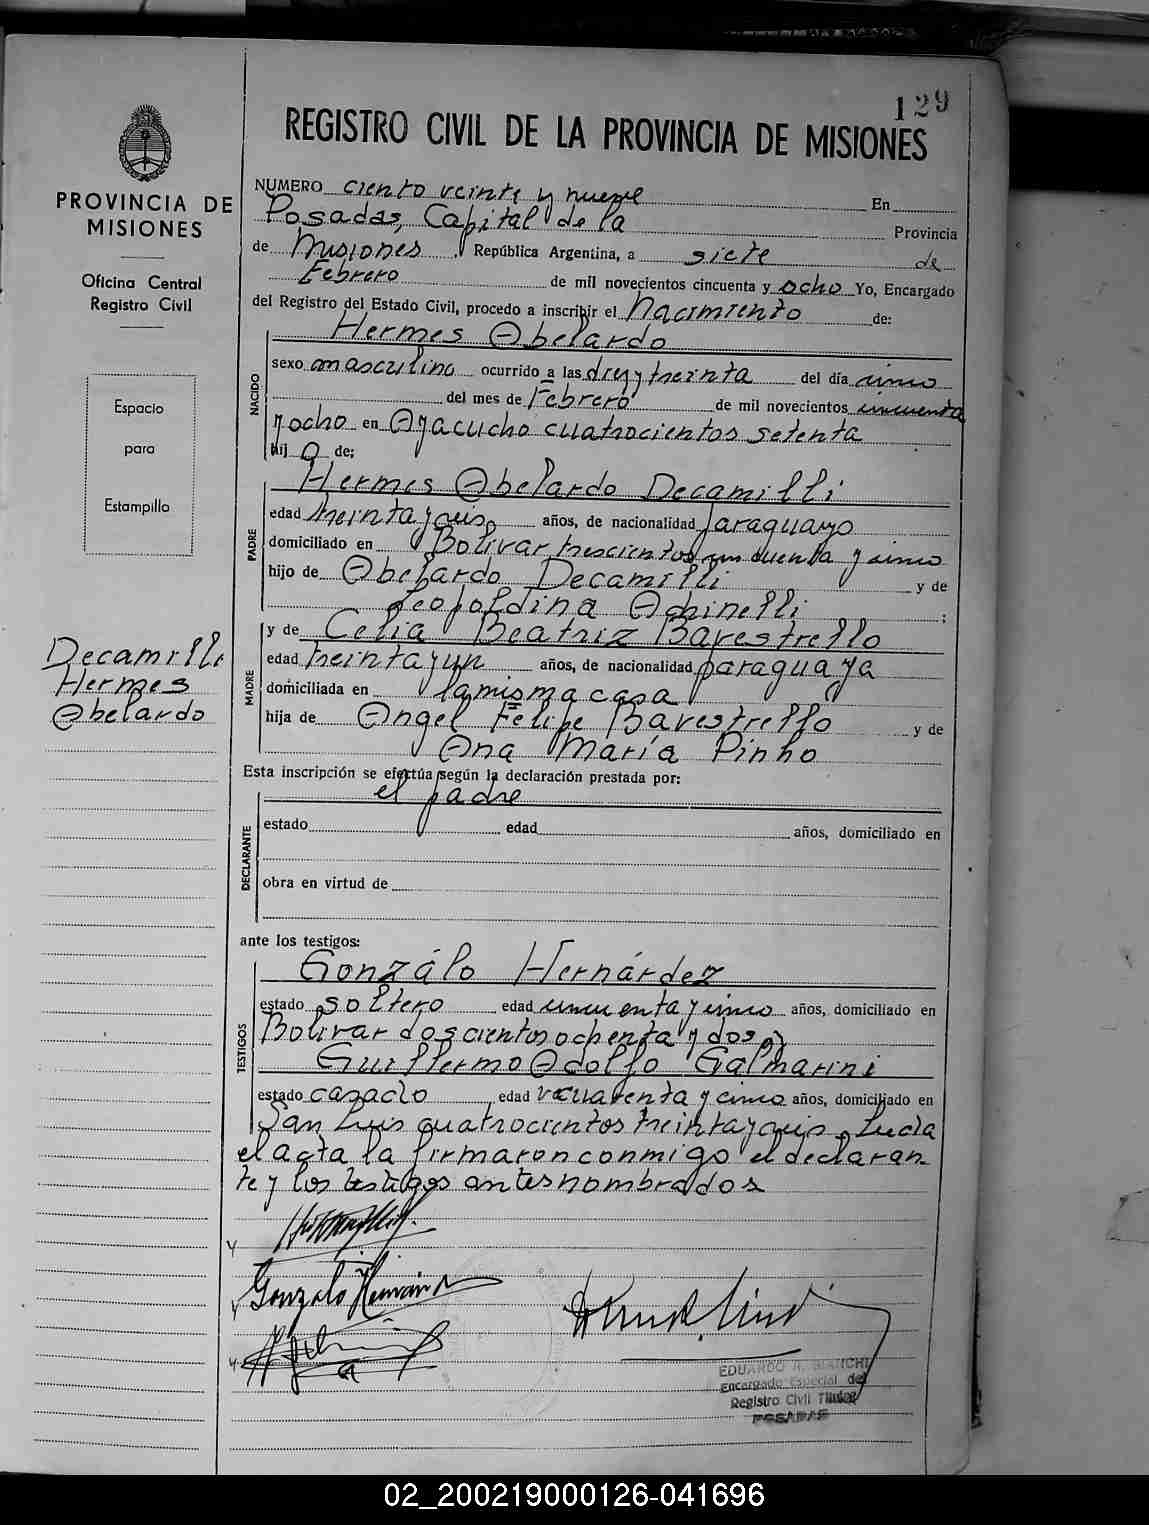 129
REGISTRO CIVIL DE LA PROVINCIA DE MISIONES
PROVINCIA DE
MISIONES
Oficina Central
Registro Civil
Espacio
para
Estampilla
Decamilli
Hermes
Abelardo
NUMERO ciento veinte y nueve En
Posadas, Capital de la Provincia
de Misiones República Argentina, a siete de
Febrero de mil novecientos cincuenta y ocho Yo, Encargado
del Registro del Estado Civil, procedo a inscribir el Nacimiento de:
NACIDO
Hermes Abelardo
sexo masculino ocurrido a las diez y treinta del día cinco
del mes de Febrero de mil novecientos cincuenta
y ocho en Ayacucho cuatrocientos setenta
hij o de:
PADRE
Hermes Abelardo Decamilli
edad treinta y seis años, de nacionalidad paraguayo
domiciliado en Bolivar trescientos cincuenta y cinco
hijo de Abelardo Decamilli y de
Leopoldina Achinelli ;
MADRE
y de Celia Beatriz Bavestrello
edad treinta y un años, de nacionalidad paraguaya
domiciliada en la misma casa
hija de Angel Felipe Bavestrello y de
Ana María Pinho
Esta inscripción se efectúa según la declaración prestada por:
el padre
DECLARANTE
estado edad años, domiciliado en
obra en virtud de
ante los testigos:
TESTIGOS
Gonzálo Hernández
estado soltero edad cincuenta y cinco años, domiciliado en
Bolivar doscientos ochenta y dos y
Guillermo Adolfo Galmarini
estado casado edad cuarenta y cinco años, domiciliado en
San Luis cuatrocientos treinta y seis. Leida
el acta la firmaron conmigo el declaran-
te y los testigos antes nombrados
Gonzalo Hernández
EDUARDO A. BIANCHI
Encargado Especial del
Registro Civil Titular
POSADAS
02_200219000126-041696